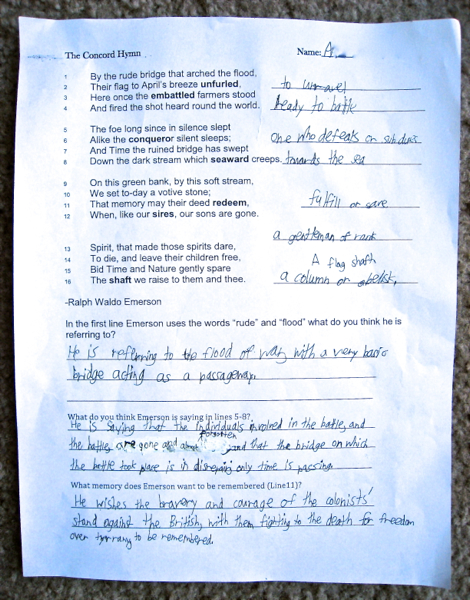 The Concord Hymn Name: A
1 By the rude bridge that arched the flood,
2 Their flag to April's breeze unfurled, to unravel
3 Here once the embattled farmers stood ready to battle
4 And fired the shot heard round the world.
5 The foe long since in silence slept
6 Alike the conqueror silent sleeps; one who defeats or subdues
7 And Time the ruined bridge has swept
8 Down the dark stream which seaward creeps. towards the sea
9 On this green bank, by this soft stream,
10 We set to-day a votive stone;
11 That memory may their deed redeem, fulfill or save
12 When, like our sires, our sons are gone.
a gentleman of rank
13 Spirit, that made those spirits dare,
14 To die, and leave their children free, A flag shaft
15 Bid Time and Nature gently spare
16 The shaft we raise to them and thee. a column or obelisk,
-Ralph Waldo Emerson
In the first line Emerson uses the words "rude" and "flood" what do you think he is
referring to?
He is reffering to the flood of war, with a very basic
bridge acting as a passageway.
What do you think Emerson is saying in lines 5-8?
He is saying that the individuals involved in the battle, and
the battle, are gone and forgotten and that the bridge on which
the battle took place is in only time is passing.
What memory does Emerson want to be remembered (Line11)?
He wishes the bravery and courage of the colonists'
stand against the British, with them fighting to the death for freedom
over tyrrany to be remembered.